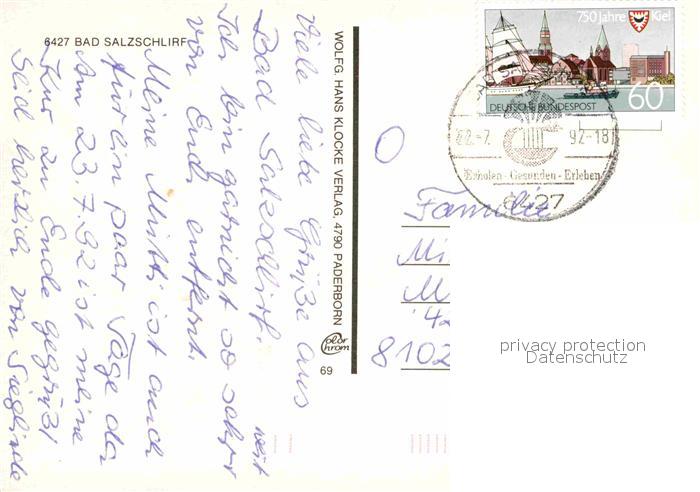 6427 BAD SALZSCHLIRF
Viele liebe Grüße aus
Bad Salzschlirf.
Ich bin garnicht so sehr weit
von Euch entfernt.
Meine Mutti ist auch
für ein paar Tage da
Am 23.7.92 ist meine
Kur zu Ende gegrüßt
Seid herzlich von Sieglinde
WOLFG. HANS KLOCKE VERLAG, 4790 PADERBORN
color chrom
69
750 Jahre Kiel
DEUTSCHE BUNDESPOST
60
22.-7. 92-18
Erholen - Gesunden - Erleben
6427
Familie
Mi
M
42
8102
privacy protection
Datenschutz